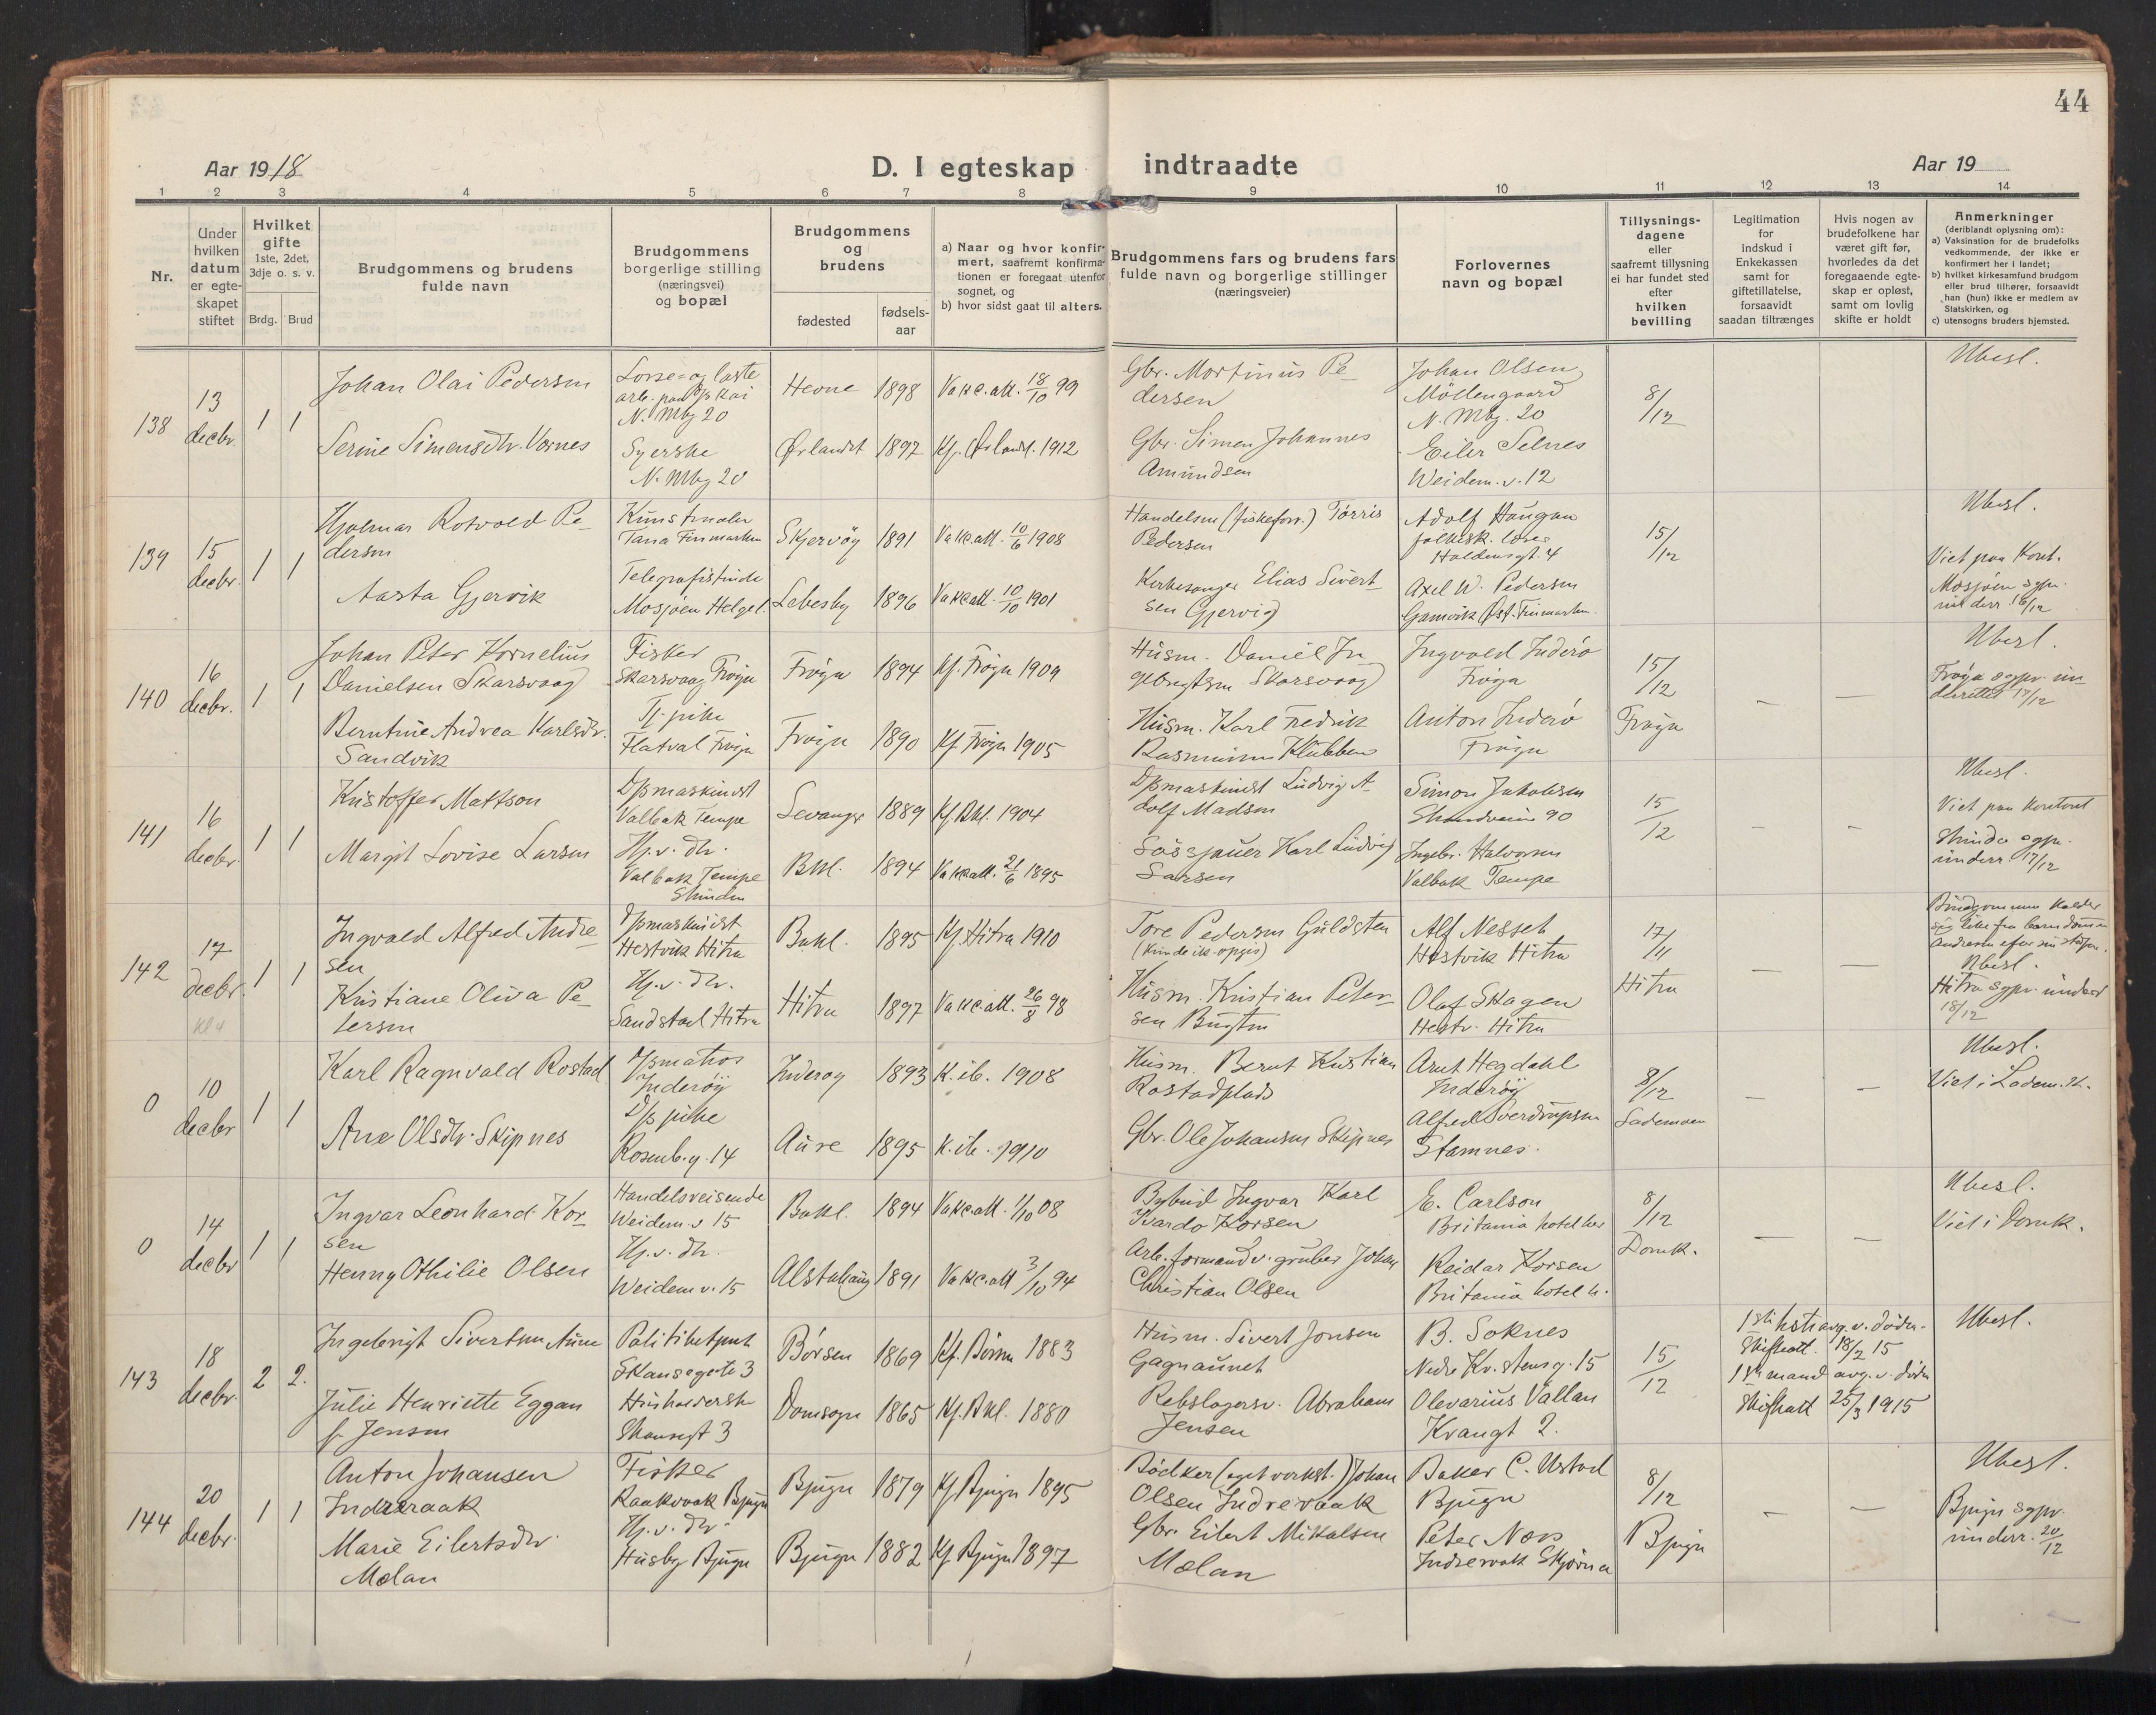 44
Aar 1918
D. I egteskap indtraadte
Aar 19
1 2 3 4 5 6 7 8 9 10 11 12 13 14
Nr.
Under hvilken datum er egteskapet stiftet
Hvilket gifte
1ste, 2det, 3dje o. s. v.
Brdg. Brud
Brudgommens og brudens fulde navn
Brudgommens borgerlige stilling (næringsvei) og bopæl
Brudgommens og brudens
fødested
fødsels-aar
a) Naar og hvor konfirmert, saafremt konfirmationen er foregaat utenfor sognet, og
b) hvor sidst gaat til alters.
Brudgommens fars og brudens fars fulde navn og borgerlige stillinger (næringsveier)
Forlovernes navn og bopæl
Tillysnings-dagene eller saafremt tillysning ei har fundet sted efter hvilken bevilling
Legitimation for indskud i Enkekassen samt for giftetillatelse, forsaavidt saadan tiltrænges
Hvis nogen av brudefolkene har været gift før, hvorledes da det foregaaende egteskap er opløst, samt om lovlig skifte er holdt
Anmerkninger
(deriblandt oplysning om):
a) Vaksination for de brudefolks vedkommende, der ikke er konfirmert her i landet;
b) hvilket kirkesamfund brudgom eller brud tilhører, forsaavidt han (hun) ikke er medlem av Statskirken, og
c) utensogns bruders hjemsted.
138
13 decbr.
1 1
Johan Olai Pedersen
Losse- og laste
arb. paa Dp kai
N. Mbg 20
Hevne 1898 Vakc.att. 18/10 99
Gbr. Martinius Pedersen
Johan Olsen
Möllengaard
N. Mbg. 20
8/12
Ubesl.
Serine Simensdtr. Vornes
Syerske
N. Mbg 20
Ørlandet 1897 Kf. Ørland. 1912
Gbr. Simen Johannes
Amundsen
Eiler Selnes
Weidem. v. 12
139
15 decbr.
1 1
Hjalmar Rotvold Pedersen
Kunstmaler
Tana Finmarken
Skjervøy 1891 Vakc.att. 10/6 1908
Handelsm (fiskeforr.) Torris
Pedersen
Adolf Haugan
folkesk. lærer
Holdensgt. 4
15/12
Ubesl.
Viet paa Kont.
Mosjöen sgpr.
underr. 16/12
Aasta Gjervik
Telegrafistinde
Mosjöen Helgel.
Lebesby 1896 Vakc.att. 10/10 1901
Kirkesanger Elias Sivertsen Gjervig
Axel W. Pedersen
Gamvik Øst-Finmarken.
140
16 decbr.
1 1
Johan Peter Kornelius
Danielsen Skarsvaag
Fisker
Skarsvaag Frøya
Frøya 1894 Kf. Frøya 1909
Husm. Daniel Ingebrigtsen Skarsvaag
Ingvald Inderø
Frøya
15/12
Frøya
Ubesl.
Frøya sgpr. underrettet 17/12
Berntine Andrea Karlsdtr.
Sandvik
Tj.pike
Flatval Frøya
Frøya 1890 Kf. Frøya 1905
Husm. Karl Fredrik
Rasmussen Klubben
Anton Inderø
Frøya
141
16 decbr.
1 1
Kristoffer Mattson
Dpmaskinist
Valbak Tempe
Levanger 1889 Kf. Bkl. 1904
Dpmaskinist Ludvig Adolf Madsen
Simon Jakobsen
Strandveien 90
15/12
Ubesl.
Viet paa kontoret
Strinda sgpr.
underr. 17/12
Margit Lovise Larsen
Hj.v. dtr.
Valbak Tempe
Strinden
Bkl. 1894 Vakc.att. 21/6 1895
Karl Ludvig
Larsen
Ingebr. Halvorsen
Valbak Tempe
142
17 decbr.
kl 4
1 1
Ingvald Alfred Andresen
Dpmaskinist
Hestvik Hitra
Bakl. 1895 Kf. Hitra 1910
Tore Pedersen Guldsten
(Kunde ik. opgis)
Alf Nesset
Hestvik Hitra
17/11
Hitra
Brudgommen kalder
sig like fra barndommen
Andresen efter sin stefar.
Ubesl.
Hitra sgpr. underr
18/12
Kristiane Oliva Petersen
Hj.v. dtr.
Sandstad Hitra
Hitra 1897 Vakc.att. 26/8 98
Husm. Kristian Petersen Bugten
Olaf Skagen
Hestv. Hitra
0
10 decbr
1 1
Karl Ragnvald Rostad
Dpmatros
Inderøy
Inderøy 1893 K. ib. 1908
Husm. Bernt Kristian
Rostadplads
Arnt Hegdahl
Inderøy
8/12
Lademoen
Ubesl.
Viet i Ladem. k.
Ane Olsdtr. Skipnes
Dp pike
Rosenb.g. 14
Aure 1895 K. ib. 1910
Gbr. Ole Johansen Skipnes
Alfred Sverdrupsen
Stamnes.
0
14 decbr
1 1
Ingvar Leonhard Korsen
Handelsreisende
Weidem. v 15
Bakl. 1894 Vakc.att. 1/10 08
Bybud Ingvar Karl
Korsen
E. Carlson
Britania hotel her
8/12
Domk.
Ubesl.
Viet i Domk.
Henny Othilie Olsen
Hj.v. dtr.
Weidem v. 15
Alstahaug 1891 Vakc.att 3/10 94
Arb.formand v. gruber Johan
Christian Olsen
Reidar Korsen
Britania hotel h.
143
18 decbr.
2 2.
Ingebrigt Sivertsen Aune
Politibetjent
Skansegate 3
Børsen 1869 Kf. Børsen 1883
Husm. Sivert Jonsen
Gagnaunet
B. Soknes
Nedre Kr. stensg. 15
15/12
1ste hustr. avg. v. døden
Skifteatt. 18/2 15
1ste mand avg. v. døden
Skifteatt 25/3 1915
Ubesl.
Julie Henriette Eggan
f. Jensen
Husholderske
Skansegt 3
Domsogn 1865 Kf. Bkl. 1880
Rebslagersv. Abraham
Jensen
Olevarius Vallan
Krangt 2.
144
20 decbr.
1 1
Anton Johansen
Indreraak
Fisker
Raakvaak Bjugn
Bjugn 1879 Kf Bjugn 1895
Bødker (eget verkst.) Johan
Olsen Indrevaak
Baker C. Ustad
Bjugn
8/12
Bjugn
Ubesl.
Bjugn sgpr.
underr. 20/12
Marie Eilertsdtr
Mælan
Hj.v. dtr.
Husby Bjugn
Bjugn 1882 Kf Bjugn 1897
Gbr. Eilert Mikalsen
Mælan
Peter Næs
Indrevaak Skjørna